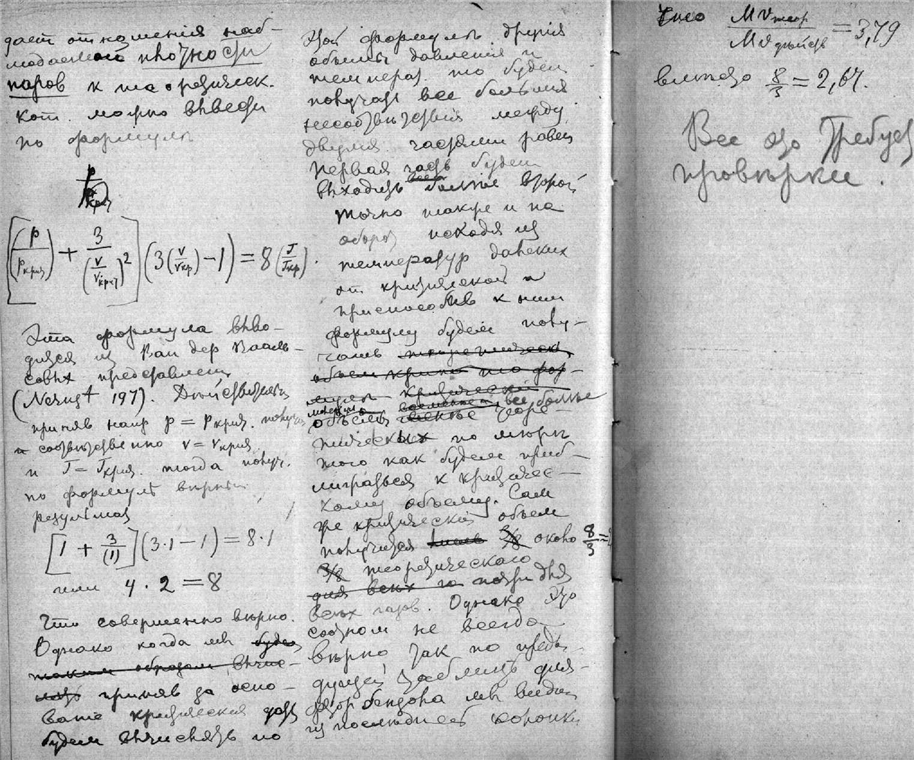 дает отношения наб-
людаемой плотности
паров к теоретическ.
кот. можно вывести
по формуле
[(p/p крит) + 3/(v/v крит)²] (3(v/v кр) − 1) = 8 (T/T кр).
Эта формула выво-
дится из Ван дер Вааль-
совых представлен
(Nernst 197). Действительно
приняв напр p = p крит. получ
и соответственно v = v крит
и T = T крит. тогда получ.
по формуле верный
результат
[1 + 3/(1)] (3·1 − 1) = 8·1
или 4 · 2 = 8
Что совершенно вѣрно.
Однако когда мы будем
таким образом вычис-
лять приняв за осно-
вание критическия
будем вычислять по
этой формуле другия
объемы давления и
температ. то будем
получать все большия
несоответствия между
двумя частями равен
первая часть будет
выходить больше второй
точно также и на
оборот исходя из
температур далеких
от критической и
приспособив к ним
формулу будем полу-
чать
объемы все больше
теоре-
тических по мѣрѣ
того как будем приб-
лижаться к критичес-
кому объему. Сам
же критический объем
получится около 8/3 =
теоретического
почти для
всех газов. Однако это
не всегда
вѣрно так по преды-
дущей таблицѣ для
фторбензола мы видим
из последней колонки
Число M v теор / M v действ = 3,79
вместо 8/3 = 2,67.
Все это Требует
провѣрки.